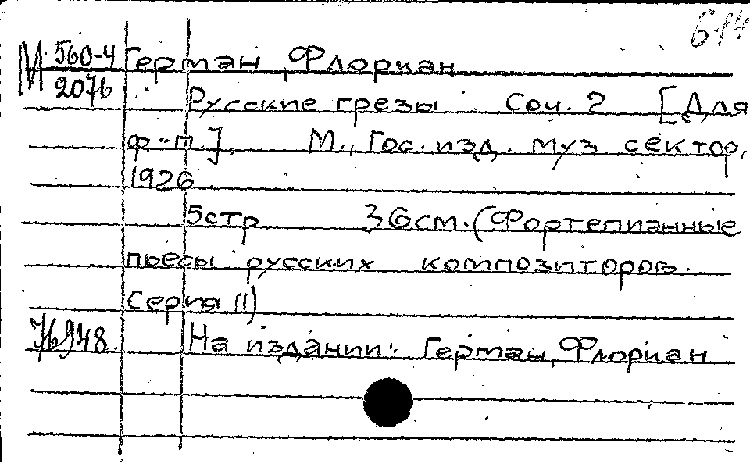 614
М 560-4
2076
Герман, Флориан
Русские грезы. Соч. 2 [Для
ф-п.]. М., Гос. изд. муз сектор,
1926
5стр 36см. (Фортепианные
пьесы русских композиторов.
Серия II)
На издании: Герман, Флориан